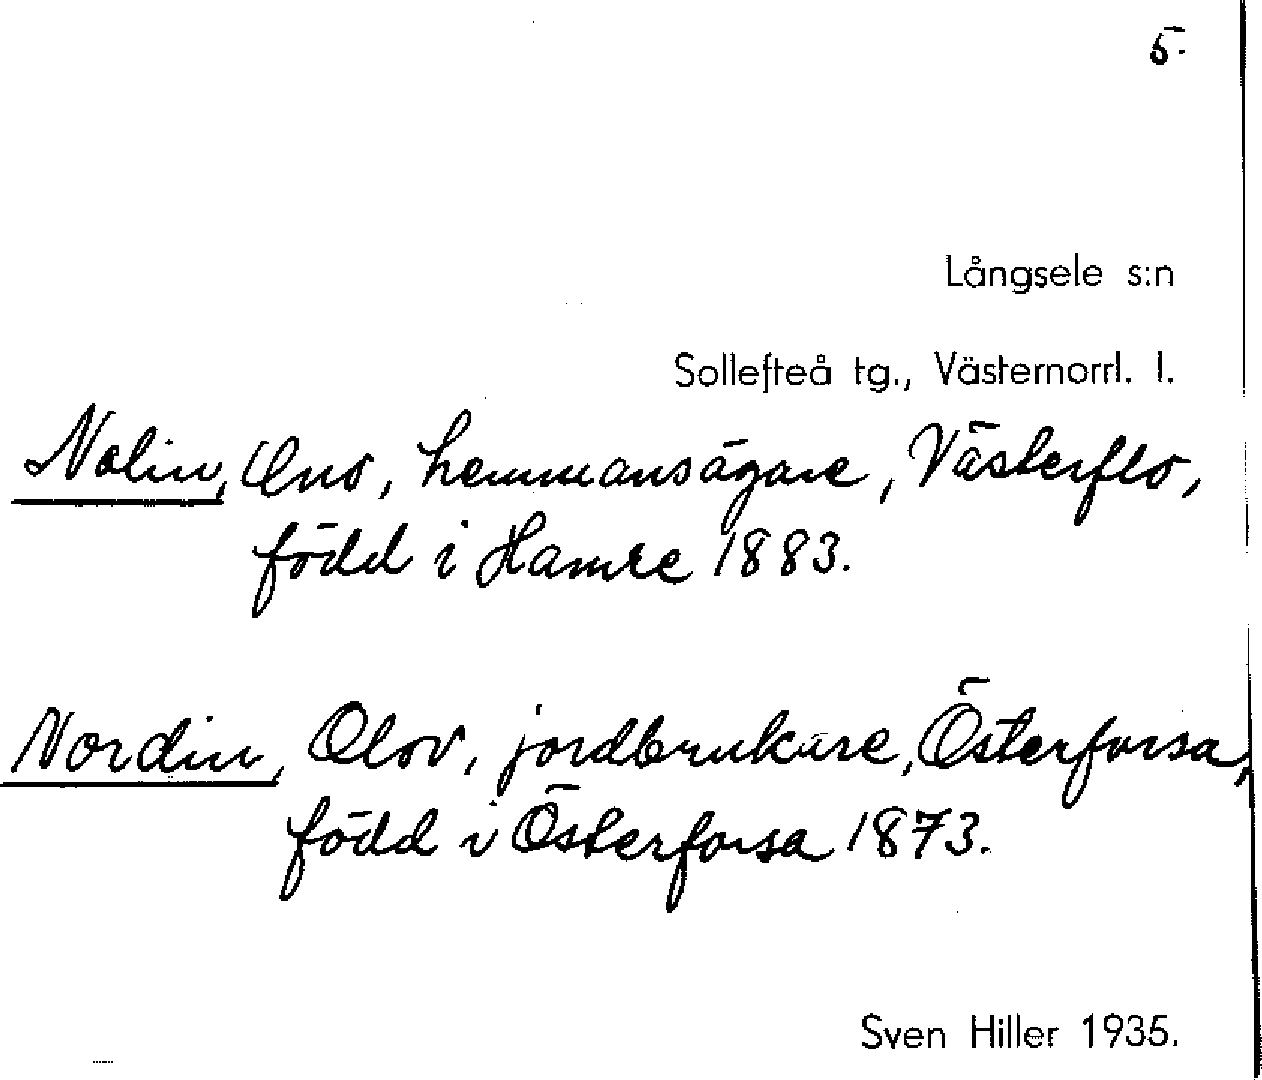 5.
Långsele s:n
Sollefteå tg., Västernorrl. l.
Nolin, Eno, hemmansägare, Västerflo,
född i Hamre 1883.
Nordin, Olov, jordbrukare, Österforsa,
född i Österforsa 1873.
Sven Hiller 1935.